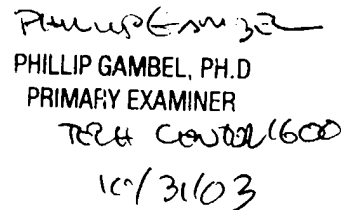 PHILLIP GAMBEL
PHILLIP GAMBEL, PH.D
PRIMARY EXAMINER
TECH CENTER 1600
10/31/03